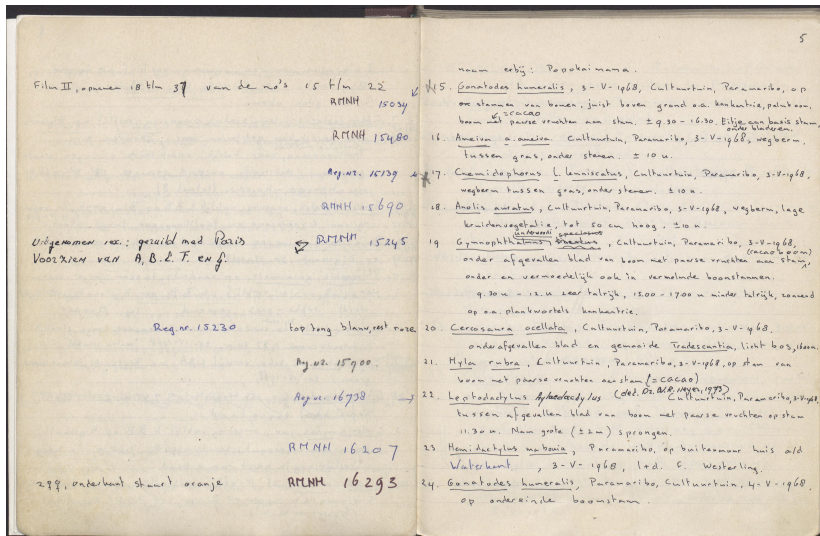 Film II, opnamen 18 t/m 37 van de no's 15 t/m 22
RMNH 15034
RMNH 15480
Reg.nr. 15139
RMNH 15690
RMNH 15245
Uitgenomen ex.: geruild met Paris
Voorzien van A, B, E, F. en G.
Reg.nr. 15230 top tong blauw, rest roze
Reg.nr. 15700
Reg.nr. 16738
RMNH 16207
2♀♀, onderkant staart oranje RMNH 16293
5
naam erbij: Popokaimama.
15. Gonatodes humeralis, 3-V-1968, Cultuurtuin, Paramaribo, op
en stammen van bomen, juist boven grond o.a. kankantrie, palmboom,
=cacao
boom met paarse vruchten aan stam. ± 9.30 - 16.30. Eitje aan basis stam,
onder bladeren.
16. Ameiva a. ameiva. Cultuurtuin, Paramaribo, 3-V-1968, wegberm,
tussen gras, onder stenen. ± 10 u.
17. Cnemidophorus l. lemniscatus, Cultuurtuin, Paramaribo, 3-V-1968,
wegberm tussen gras, onder stenen. ± 10 u.
18. Anolis auratus, Cultuurtuin, Paramaribo, 3-V-1968, wegberm, lage
kruidenvegetatie, tot 50 cm hoog, ±10 u.
underwoodi speciosus
19 Gymnophthalmus lineatus, Cultuurtuin, Paramaribo, 3-V-1968,
(cacaoboom)
onder afgevallen blad van boom met paarse vruchten aan stam,
onder en vermoedelijk ook in vermolmde boomstammen.
9.30 u - 12.u zeer talrijk, 15.00 - 17.00 u minder talrijk, zonnend
op o.a. plankwortels kankantrie.
20. Cercosaura ocellata, Cultuurtuin, Paramaribo, 3-V-1968.
onder afgevallen blad en gemaaide Tradescantia, licht bos,
21. Hyla rubra, Cultuurtuin, Paramaribo, 3-V-1968, op stam van
boom met paarse vruchten aan stam (=cacao)
22. Leptodactylus (det. Dr. W.R. Heyer, 1973) Cultuurtuin, Paramaribo, 3-V-1968,
tussen afgevallen blad van boom met paarse vruchten op stam
11.30 u. Nam grote (±2m) sprongen.
23 Hemidactylus mabouia, Paramaribo, op buitenmuur huis a/d
Waterkant, 3-V-1968, l+d. G. Westerling.
24. Gonatodes humeralis, Paramaribo, Cultuurtuin, 4-V-1968.
op ondereinde boomstam.